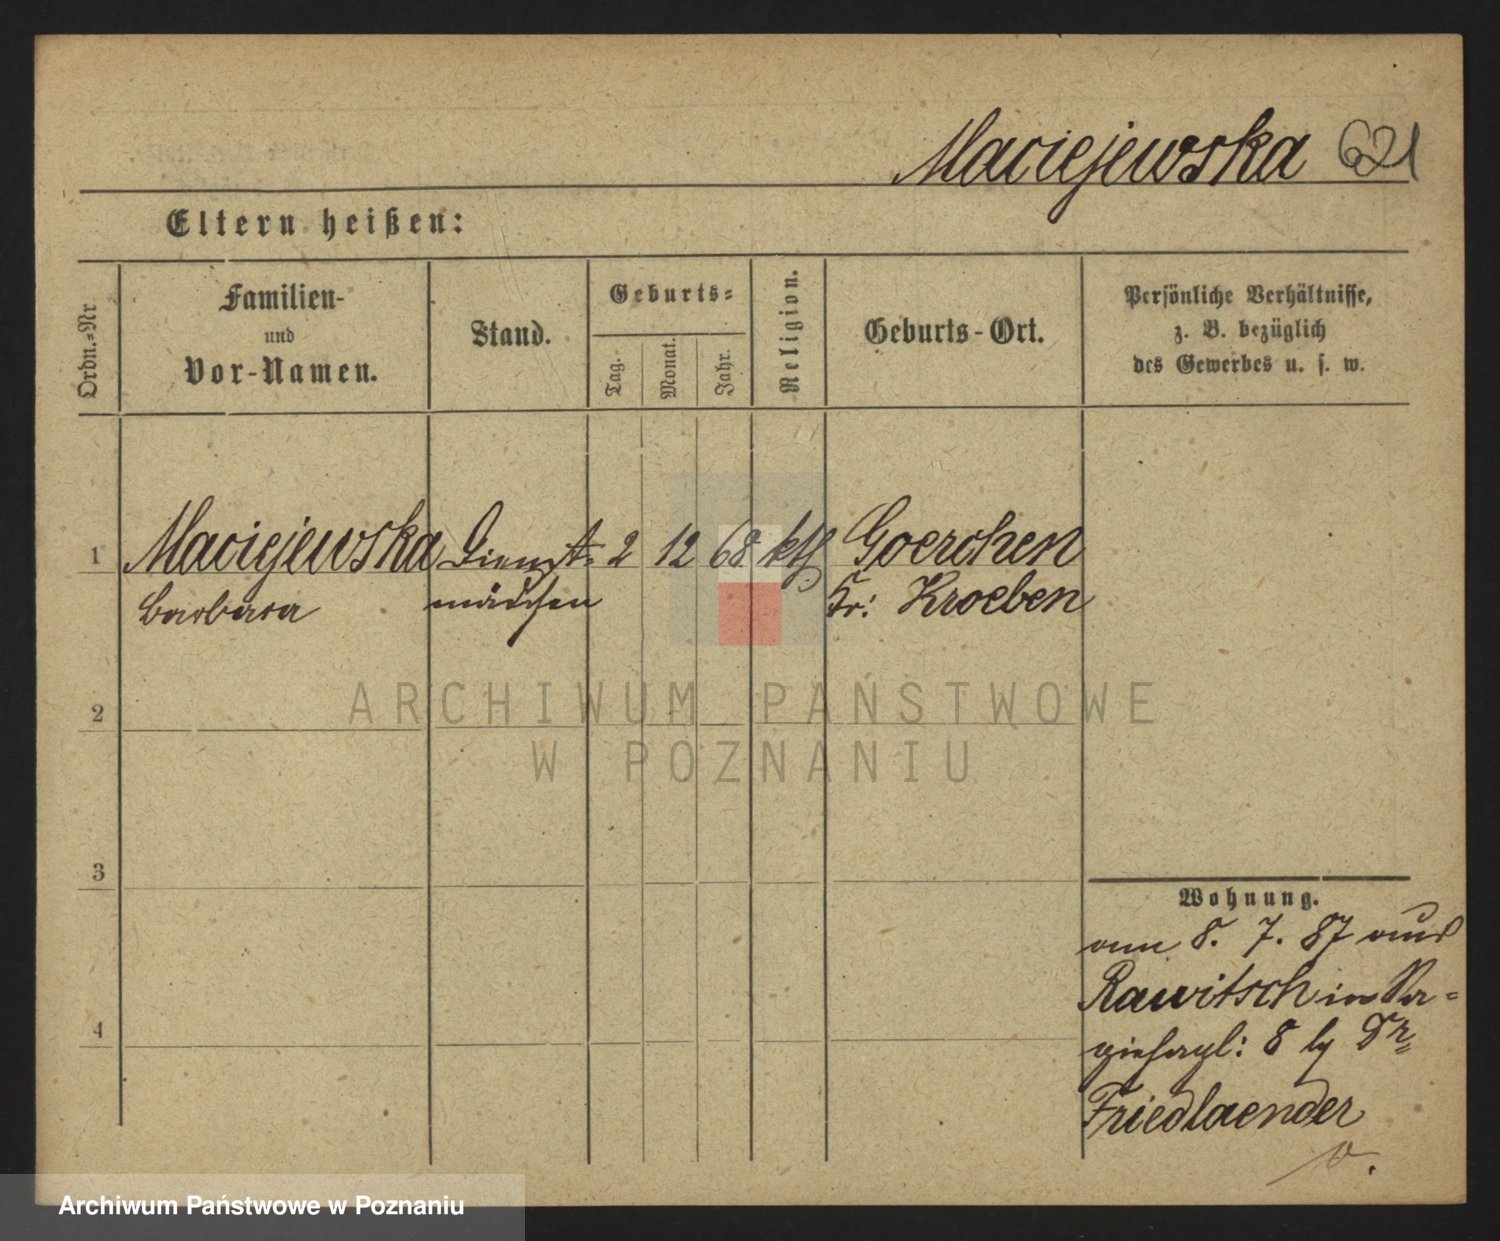 Maciejewska 621
Eltern heißen:
Ordn.-Nr
Familien-
und
Vor-Namen.
Stand.
Geburts-
Tag.
Monat.
Jahr.
Religion.
Geburts-Ort.
Persönliche Verhältnisse,
z. B. bezüglich
des Gewerbes u. s. w.
1 Maciejewska Dienst- 2 12 68 kth Goerchen
Barbara mädchen Kr: Kroeben
2
3
4
Wohnung.
am 8. 7. 87 aus
Rawitsch in
8 Dr
Friedlaender
ARCHIWUM PAŃSTWOWE
W POZNANIU
Archiwum Państwowe w Poznaniu